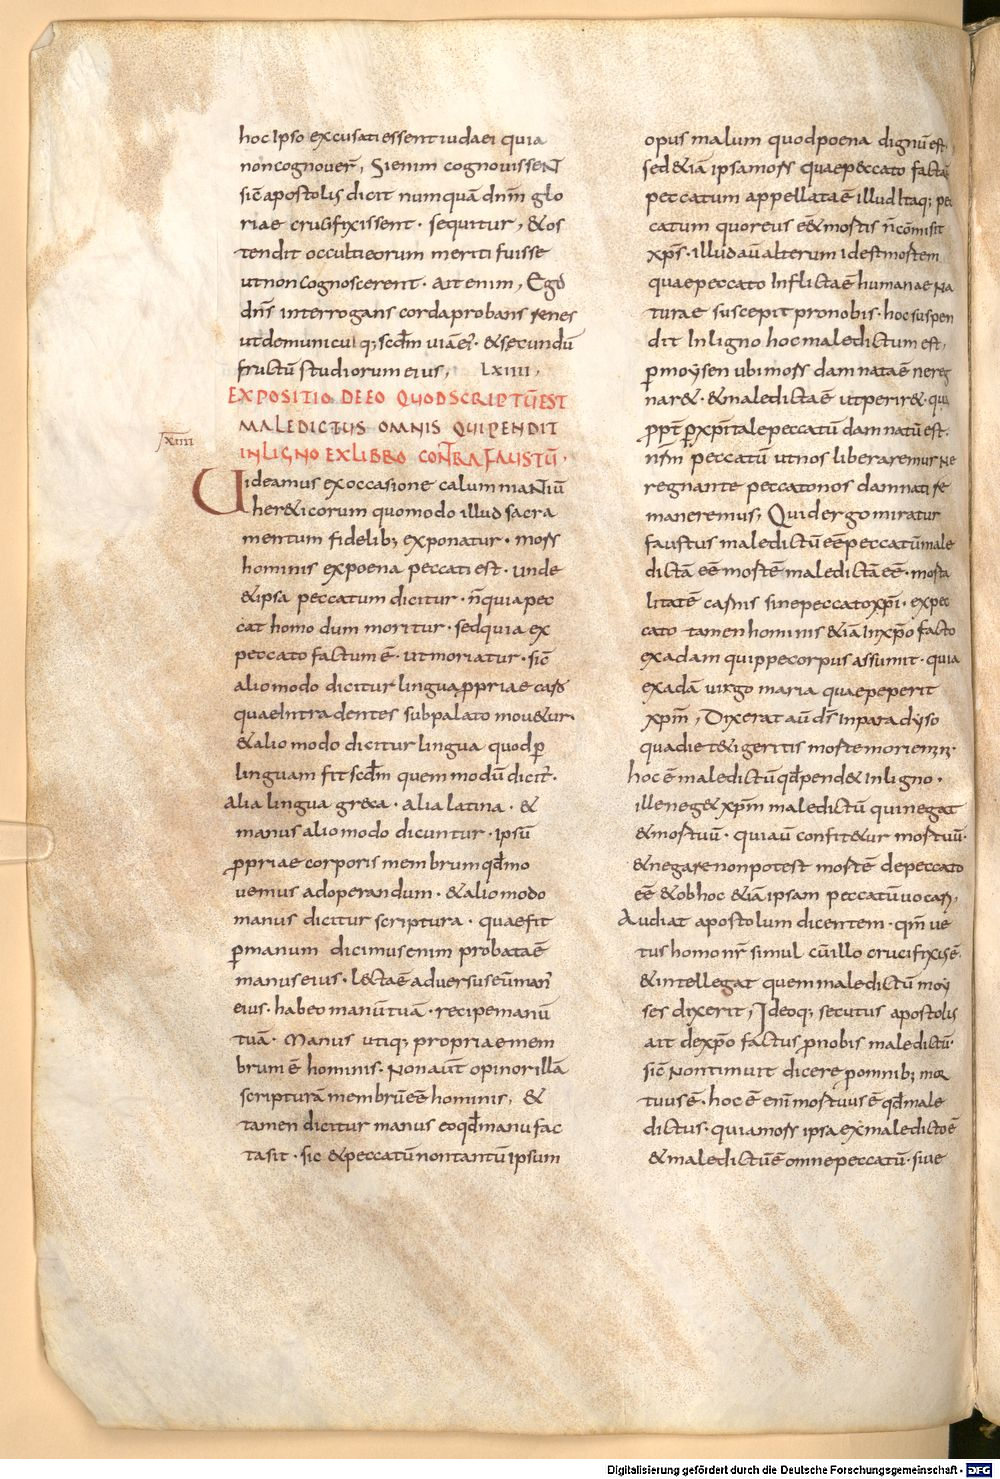 hoc ipso excusati essent iudaei quia
non cognouer̄, Si enim cognouissent
sic̄ apostolis dicit numquā dnm̄ glo
riae crucifixissent · sequitur, & os
tendit occulti eorum meriti fuisse
ut non cognoscerent · ait enim, Ego
dn̄s interrogans corda probans renes
ut dem unicuiq; scd̄m uiā ei᾽ · & secundū
fructū studiorum eius, LXIIII,
EXPOSITIO DE EO QUOD SCRIPTŪ EST
MALEDICTUS OMNIS QUI PENDIT
IN LIGNO EX LIBRO CONTRA FAUSTŪ ·
LXIIII
Uideamus ex occasione calumniantiū
her&icorum quomodo illud sacra
mentum fidelib; exponatur · mors
hominis ex poena peccati est · unde
& ipsa peccatum dicitur · n̄ quia pec
cat homo dum moritur · sed quia ex
peccato factum ē · ut moriatur · sic̄
alio modo dicitur lingua ꝓpriae caro
quae intra dentes sub palato mou&ur ·
& alio modo dicitur lingua quod ꝑ
linguam fit scd̄m quem modū dicit᾽ ·
alia lingua greca · alia latina · &
manus alio modo dicuntur · ipsū
ꝓpriae corporis membrum qd̄ mo
uemus ad operandum · & alio modo
manus dicitur scriptura · quae fit
ꝑ manum dicimus enim probata ē
manus eius · lecta ē aduersus eū man᾽
eius · habeo manū tuā · recipe manū
tuā · Manus utiq; propriae mem
brum ē hominis · Non aūt opinor illā
scripturā membrū eē hominis, &
tamen dicitur manus eo qd̄ manu fac
ta sit · sic & peccatū non tantū ipsum
opus malum quod poena dignū est,
sed &iā ipsa mors quae peccato facta
peccatum appellata ē illud Itaq; pec
catum quo reus eē & mortis n̄ cōmisit
xp̄s · illud aū alterum id est mortem
quae peccato inflicta ē humanae na
turae suscepit pro nobis · hoc suspen
dit in ligno hoc maledictum est,
ꝑ moysen ubi mors damnata ē ne reg
nar& · & maledicta ē ut perir& · qua
ꝓpt̄ ꝑ xpī tale peccatū damnatū est ·
nrm̄ peccatū ut nos liberaremur ne
regnante peccato nos damnati re
maneremus, Quid ergo miratur
faustus maledictū eē peccatū male
dictā eē mortē maledictā eē · morta
litatē carnis sine peccato xpī · ex pec
cato tamen hominis &iā in xpo facto
ex adam quippe corpus assumit · quia
ex adā uirgo maria quae peperit
xpm̄, Dixerat aū ds̄ in paradyso
qua die t&igeritis morte moriemini ·
hoc ē maledictū qd̄ pend& in ligno ·
ille neg& xpm̄ maledictū qui negat
& mortuū · quia ū confit&ur mortuū ·
& negare non potest mortē de peccato
eē & ob hoc &iā ipsam peccatū uocari,
Audiat apostolum dicentem · qm̄ ue
tus homo nr̄ simul cū illo crucifixis ē ·
& intellegat quem maledictū moy
ses dixerit, Ideoq; secutus apostolis
ait de xpo factus ꝓ nobis maledictū ·
sic̄ non timuit dicere ꝓ omnib; mor
tuus ē · hoc ē enī mortuus ē qd̄ male
dictus · quia mors ipsa ex maledicto ē
& maledictū ē omne peccatū · siue
Digitalisierung gefördert durch die Deutsche Forschungsgemeinschaft - DFG